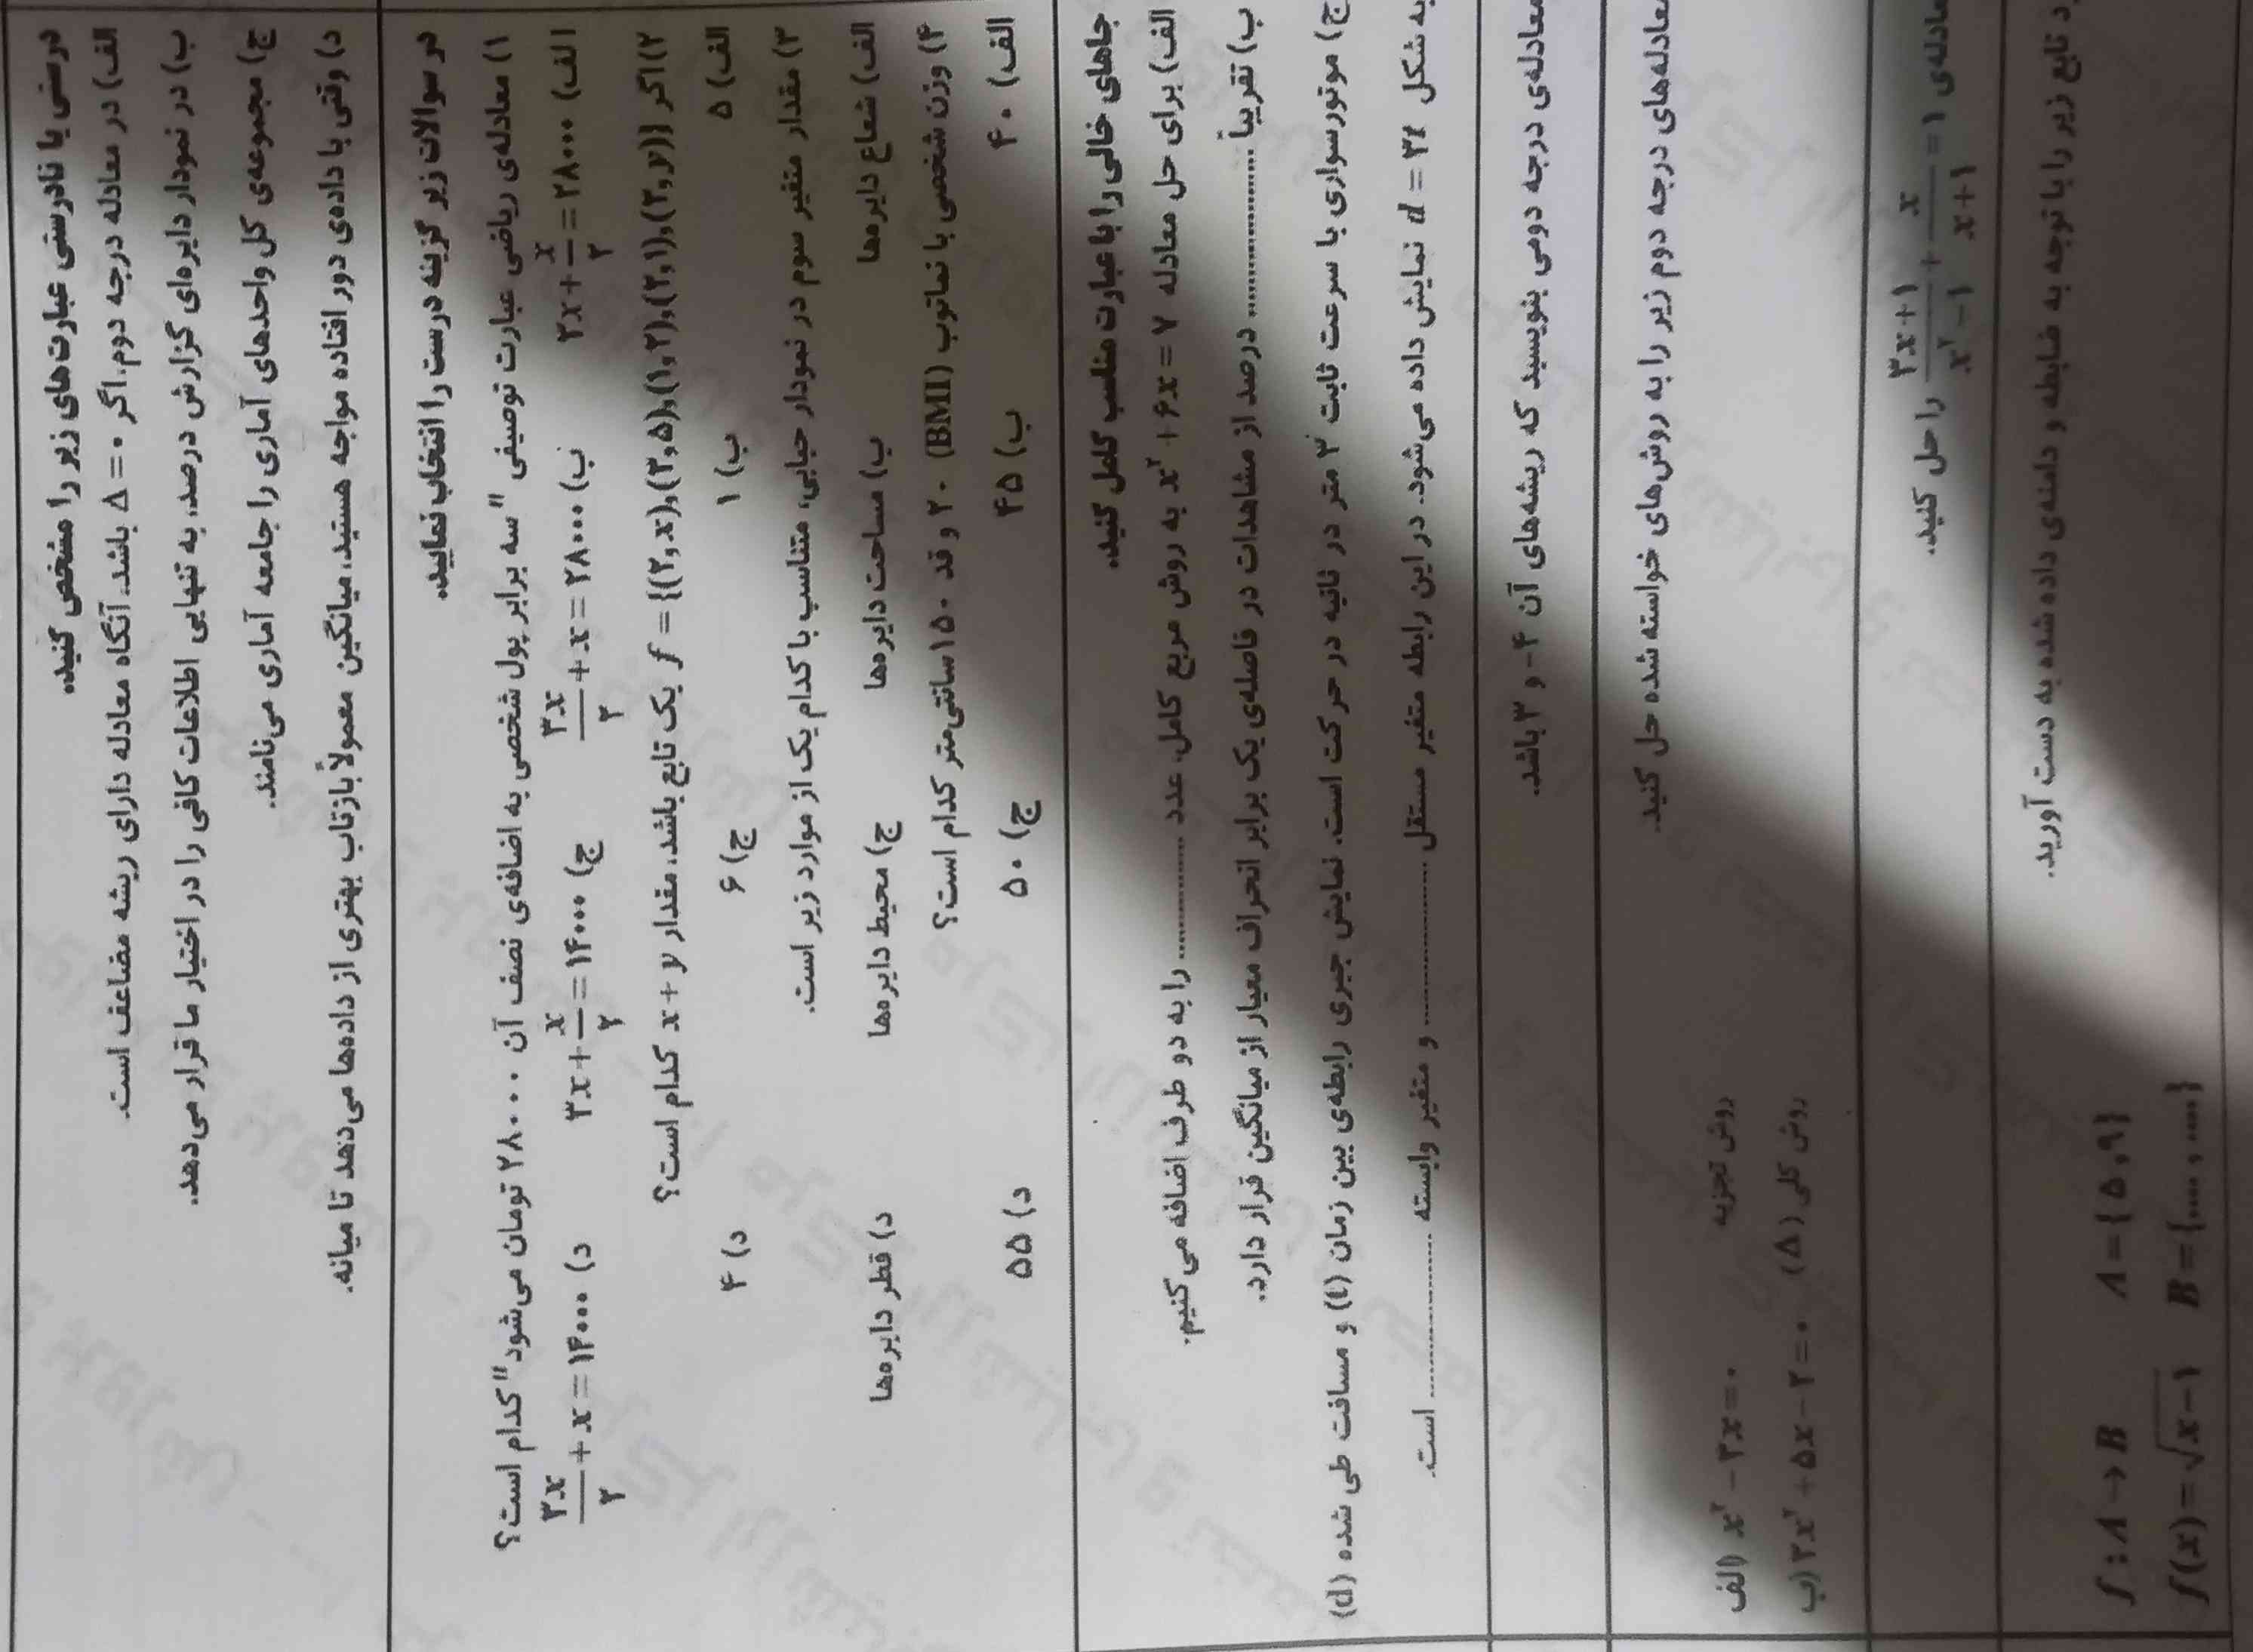 درستی یا نادرستی عبارت‌های زیر را مشخص کنید.
الف) در معادله درجه دوم، اگر Δ = ۰ باشد. آنگاه معادله دارای ریشه مضاعف است.
ب) در نمودار دایره‌ای گزارش درصد، به تنهایی اطلاعات کافی را در اختیار ما قرار می‌دهد.
ج) مجموعه‌ی کل واحدهای آماری را جامعه آماری می‌نامند.
د) وقتی با داده‌ی دور افتاده مواجه هستید، میانگین معمولاً بازتاب بهتری از داده‌ها می‌دهد تا میانه.
در سوالات زیر گزینه درست را انتخاب نمایید.
۱) معادله‌ی ریاضی عبارت توصیفی "سه برابر پول شخصی به اضافه‌ی نصف آن ۲۸۰۰۰ تومان می‌شود" کدام است؟
الف) ۳x + x/۲ = ۲۸۰۰۰ ب) ۳x/۲ + x = ۲۸۰۰۰ ج) ۳x + x/۲ = ۱۴۰۰۰ د) ۳x/۲ + x = ۱۴۰۰۰
۲) اگر f = {(۲,x),(۳,۵),(۱,۲),(۲,۱),(۳,y)} یک تابع باشد، مقدار x + y کدام است؟
الف) ۵ ب) ۱ ج) ۶ د) ۴
۳) مقدار متغیر سوم در نمودار حبابی، متناسب با کدام یک از موارد زیر است.
الف) شعاع دایره‌ها ب) مساحت دایره‌ها ج) محیط دایره‌ها د) قطر دایره‌ها
۴) وزن شخصی با نماتوب (BMI) ۲۰ و قد ۱۵۰ سانتی‌متر کدام است؟
الف) ۴۰ ب) ۴۵ ج) ۵۰ د) ۵۵
جاهای خالی را با عبارت مناسب کامل کنید.
الف) برای حل معادله x² + ۶x = ۷ به روش مربع کامل، عدد ............ را به دو طرف اضافه می‌کنیم.
ب) تقریباً ................ درصد از مشاهدات در فاصله‌ی یک برابر انحراف معیار از میانگین قرار دارد.
ج) موتورسواری با سرعت ثابت ۳ متر در ثانیه در حرکت است. نمایش جبری رابطه‌ی بین زمان (t) و مسافت طی شده (d)
به شکل d = ۳t نمایش داده می‌شود. در این رابطه متغیر مستقل ................ و متغیر وابسته ................ است.
معادله‌ی درجه دومی بنویسید که ریشه‌های آن ۴- و ۳ باشد.
معادله‌های درجه دوم زیر را به روش‌های خواسته شده حل کنید.
الف) x² − ۳x = ۰ روش تجزیه
ب) ۳x² + ۵x − ۲ = ۰ روش کلی (Δ)
معادله‌ی (۳x+۱)/(x²−۱) + x/(x+۱) = ۱ را حل کنید.
تابع زیر را با توجه به ضابطه و دامنه‌ی داده شده به دست آورید.
f : A → B A = {۵,۹}
f(x) = √(x−۱) B = {.....,.....}